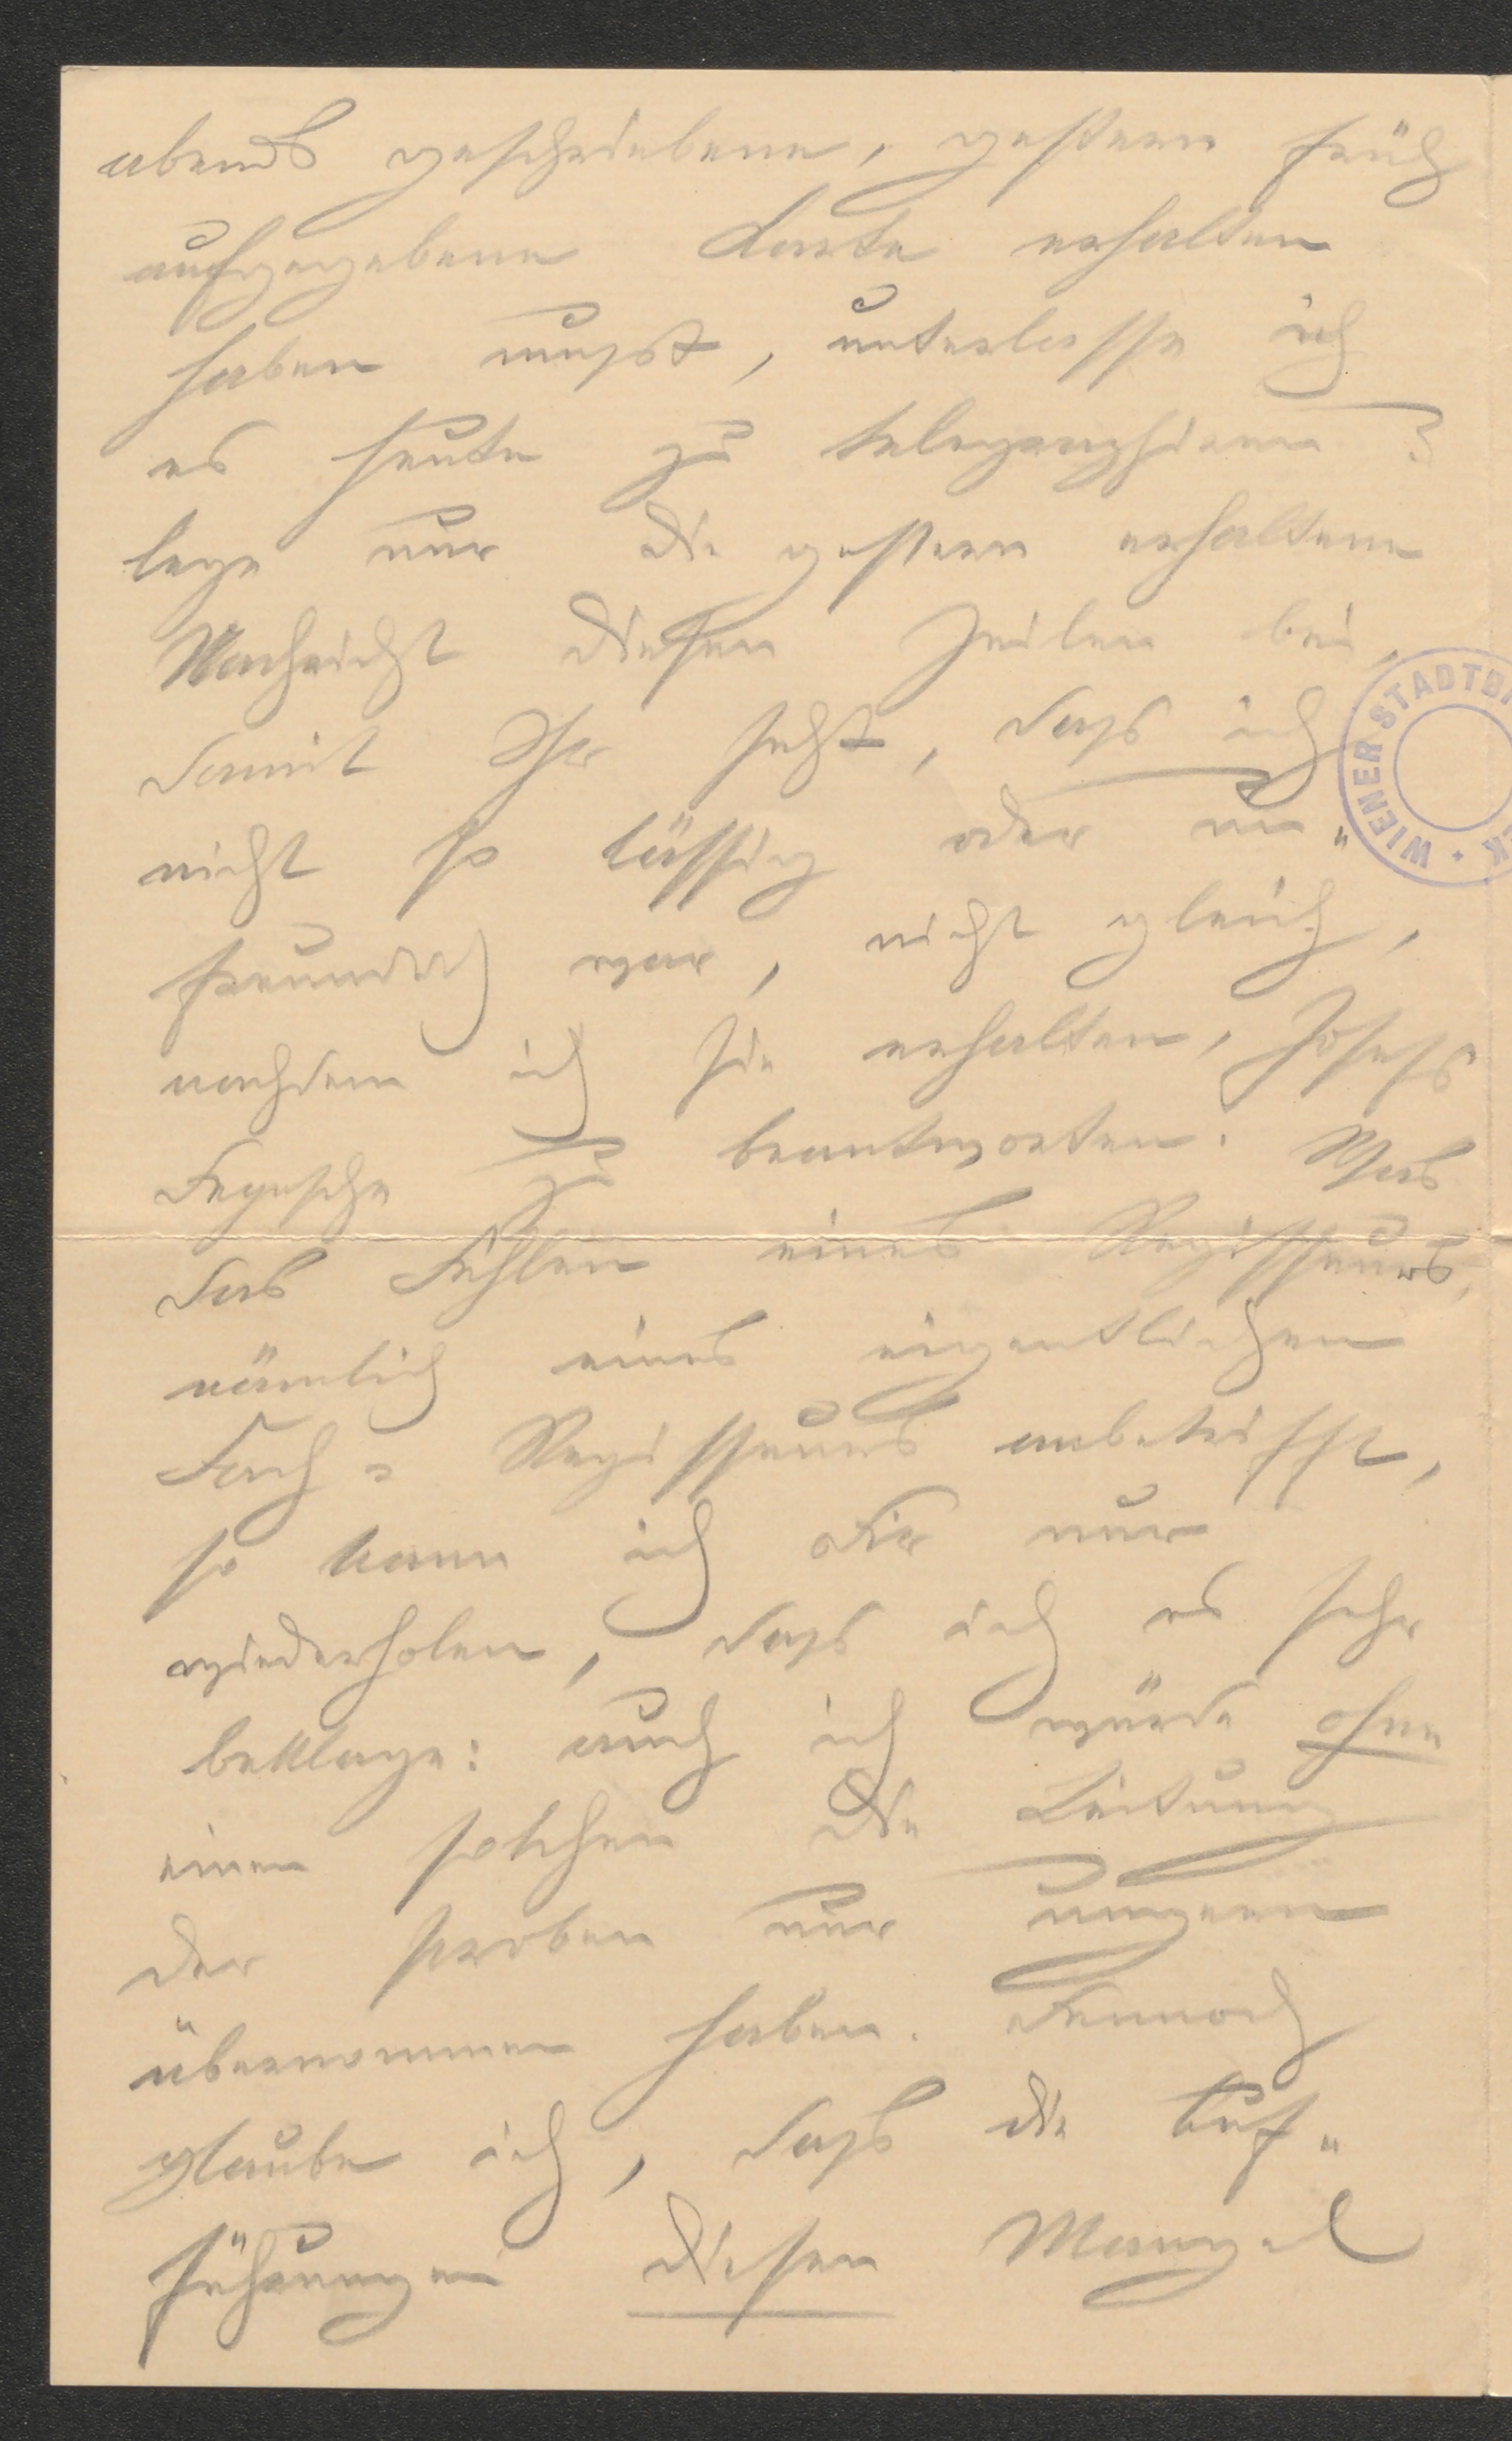 abends geschriebene, gestern früh
aufgegebene Karte erhalten
haben mußt, unterlasse ich
es heute zu telegraphieren &
lege nur die gestern erhaltene
Nachricht diesen Zeilen bei,
damit Ihr seht, daß ich
nicht so lässig oder un„
freundlich war, nicht gleich,
nachdem ich sie erhalten, Josephs
Depesche zu beantworten. Was
das Fehlen eines Regisseurs,
nämlich eines eigentlichen
Fach= Regisseurs anbetrifft,
so kann ich Dir nur
wiederholen, daß ich es sehr
beklage: auch ich würde ohne
einen solchen die Leitung
der Proben nur ungern
übernommen haben. Dennoch
glaube ich, daß die Auf„
führungen diesen Mangel
WIENER STADTB